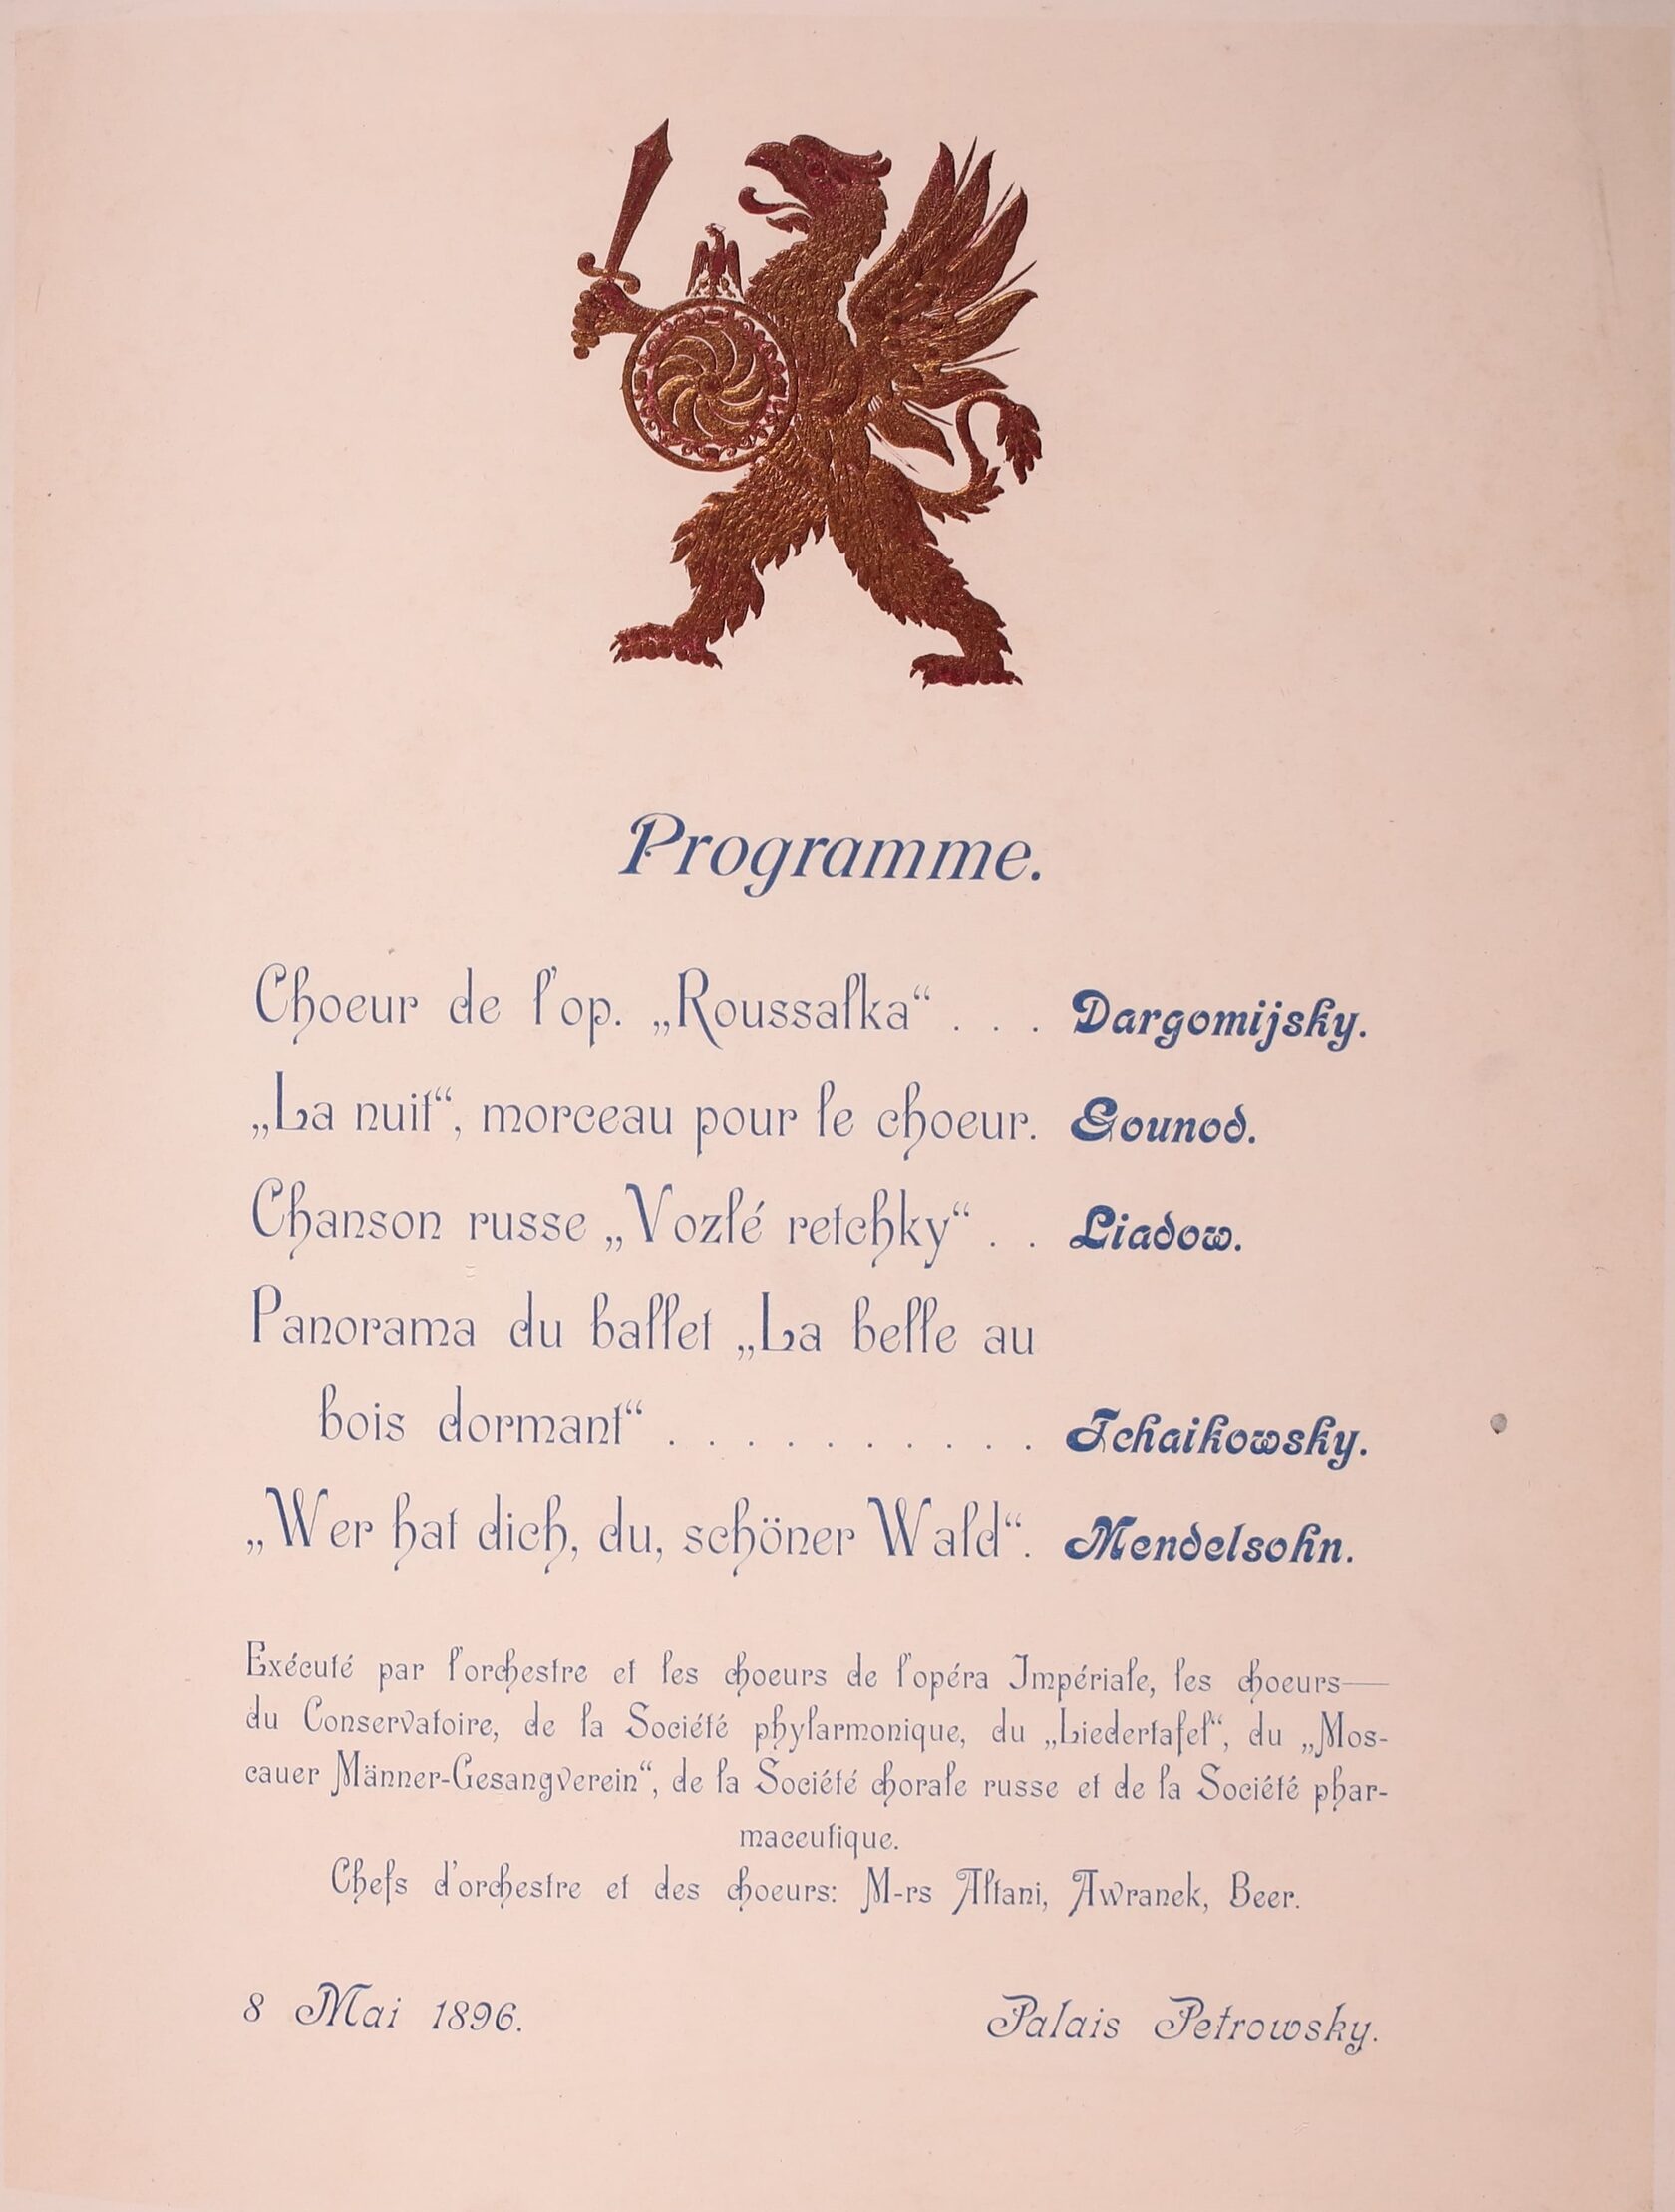 Programme.
Choeur de l'op. „Roussalka“ . . . Dargomijsky.
„La nuit“, morceau pour le choeur. Gounod.
Chanson russe „Vozlé retchky“ . . Liadow.
Panorama du ballet „La belle au
bois dormant“ . . . . . . . . . . . Tchaikowsky.
„Wer hat dich, du, schöner Wald“. Mendelsohn.
Exécuté par l'orchestre et les choeurs de l'opéra Impériale, les choeurs—
du Conservatoire, de la Société phylarmonique, du „Liedertafel“, du „Mos-
cauer Männer-Gesangverein“, de la Société chorale russe et de la Société phar-
maceutique.
Chefs d'orchestre et des choeurs: M-rs Altani, Awranek, Beer.
8 Mai 1896. Palais Petrowsky.